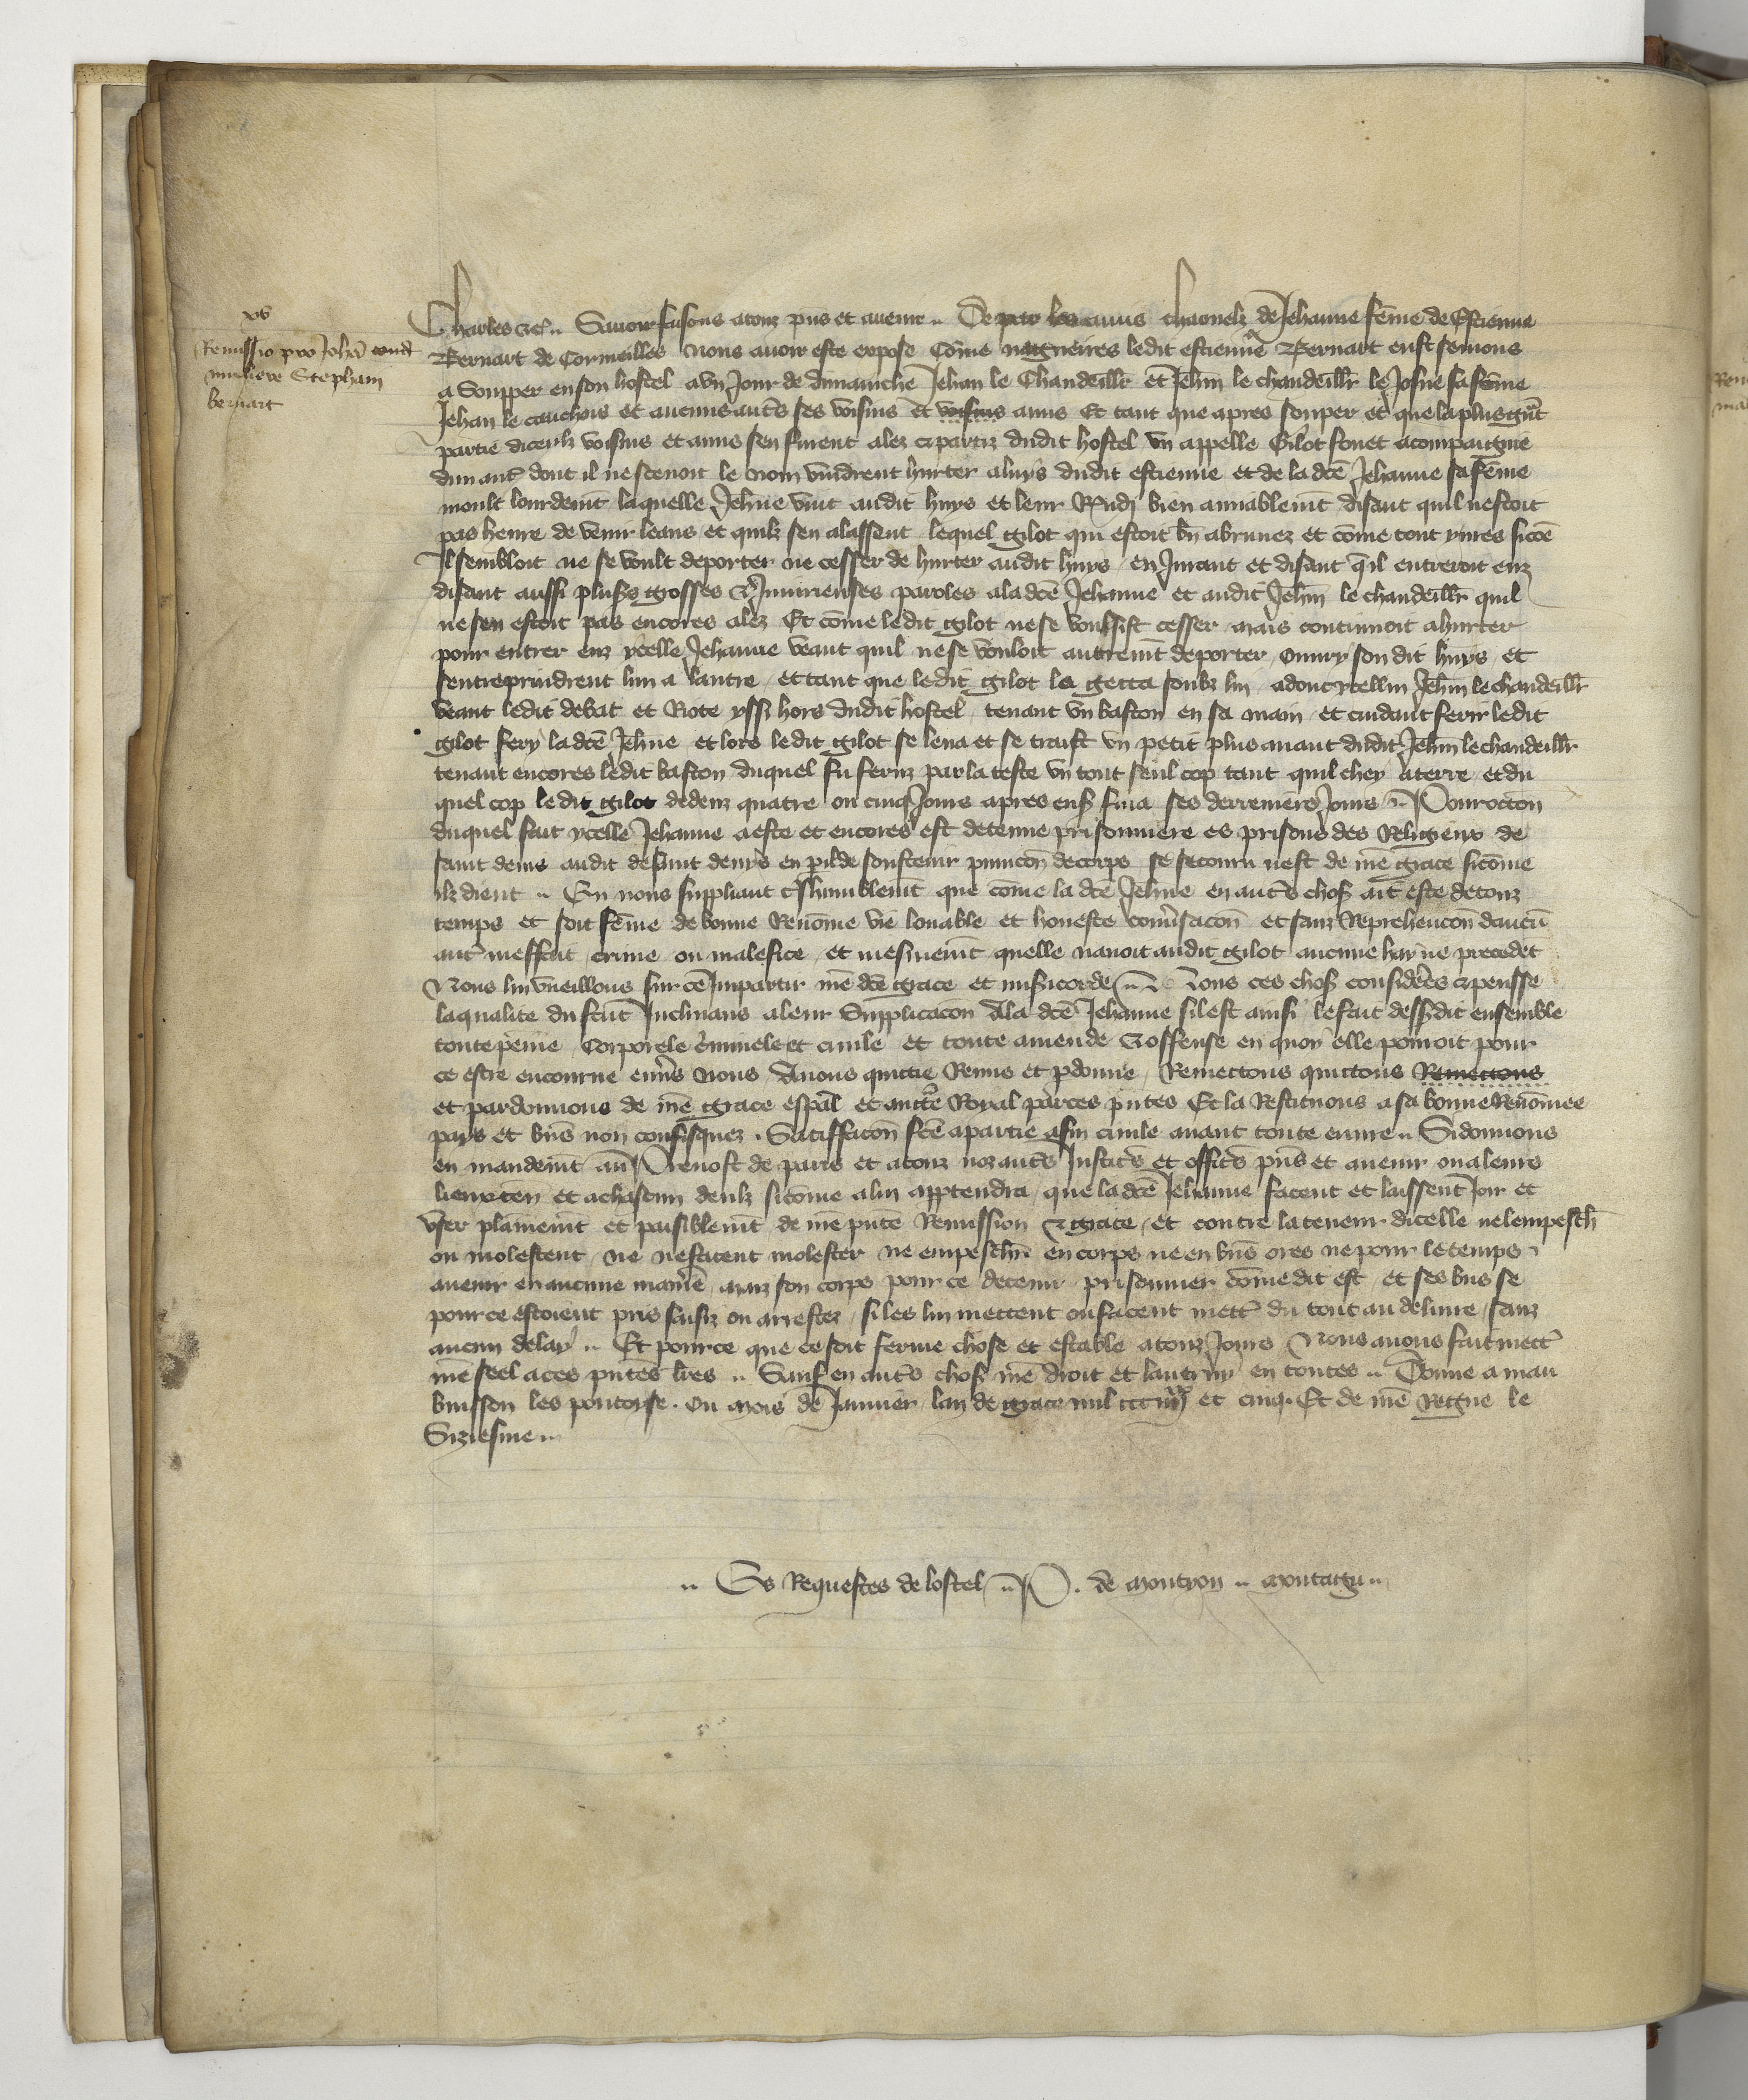 xv
Remissio pro Joha cond
muliere Stephani
bernart
Charles etc. Savoir faisons a touz pns et avenir. De par les amis charnelz de Jehanne feme de Estienne
Bernart de Cormeilles nous avoir este expose Come nagueires ledit estienne Bernart eust semons
a Soupper en son hostel a un Jour de dimanche Jehan le Chandeillr et Jehn le chandeillr le Josne sa feme
Jehan le cauchois et aucuns autrs ses voisins et voisins amis Et tant que apres souper et que la plus grt
partie diceulz voisins et amis sen furent alez et partiz dudit hostel un appelle Gilot fouet acompaigne
dun autr dont il ne scevoit le nom vindrent hurter a luys dudit estienne et de la dce Jehanne sa feme
moult lourdemt laquelle Jehne vint audit huys et leur Rndi bien amiablemt disant quil nestoit
pas heure de venir leans et quilz sen alassent lequel gilot qui estoit bn abruvez et come tout yvres sicoe
Il sembloit ne se voult deporter ne cesser de hurter audit huys en Jurant et disant ql entreroit enz
disant aussi plusrs grosses et Injurieuses paroles a la dce Jehanne et audit Jehn le chandeillr quil
ne sen estoit pas encores alez Et come ledit gilot ne se voulsist cesser mais continuoit a hurter
pour entrer enz ycelle Jehanne veant quil ne se vouloit autremt deporter ouvry son dit huys et
sentreprindrent lun a lautre et tant que ledit gilot la getta soubz lui adonc ycellui Jehn le chandeillr
veant ledit debat et Riote yssi hors dudit hostel tenant un baston en sa main et cuidant ferir ledit
gilot fery la dce Jehne et lors ledit gilot se leva et se traist un petit plus avant dudit Jehn le chandeillr
tenant encores ledit baston duquel fu feruz par la teste un tout seul cop tant quil chey a terre et du
quel cop ledit gilot dedenz quatre ou cinq Jours apres ens fina ses derreniers Jours Pour occon
duquel fait ycelle Jehanne a este et encores est detenue prisonniere es prisons des Religieux de
saint denis audit de saint denys en pil de soustenir punicon de corps se secouru nest de nre grace sicome
ilz dient. En nous suppliant tshumblemt que come la dce Jehne en autrs chos ait este de touz
temps et soit feme de bonne Renome vie louable et honeste convsacon et sanz Reprehencon daucu
autr meffait crime ou malefice et mesmemt quelle navoit audit gilot aucune hayne precedet
Nous lui vueillons sur ce Impartir nre dce grace et misicorde. Nous ces chos considrees et pensse
la qualite du fait Inclinans a leur Supplicacon A la dce Jehanne sil est ainsi le fait dessdit ensemble
toute peine Corporele crimnele et civile et toute amende et offense en quoy elle pourroit pour
ce estre encourue envrs nous Avons quictie Remis et pdonne Remectons quictons Remectons
et pardonnons de nre grace espal et auctte Royal par ces pntes Et la Restituons a sa bonne Renomee
pays et bns non confisquez. Satiffacon fce a partie a fin civile avant toute euvre. Si donnons
en mandemt au Prevost de paris et a touz noz autrs Justicrs et officrs pns et avenir ou a leurs
lieuxten et a chascun deulz sicome a lui apptendra que la dce Jehanne facent et laissent Joir et
user plainemt et paisiblemt de nre pnte Remission et grace et contre la teneur dicelle ne lempeschn
ou molestent ne ne facent molester ne empeschr en corps ne en bns ores ne pour le temps
avenir en aucune maniere maiz son corps pour ce detenu prisonnier come dit est et ses bns se
pour ce estoient pris saisiz ou arrestez si les lui mettent ou facent mettr du tout au delivre sanz
aucun delay. Et pour ce que ce soit ferme chose et estable a touz Jours Nous avons fait mettr
nre seel a ces pntes lres. Sauf en autrs chos nre droit et lautruy en toutes. Donne a mau
buisson les pontoise. Ou mois de Janvier lan de grace mil ccc iiiixx et cinq. Et de nre Regne le
Siziesme.
Es Requestes de lostel. P. de montyon. montagu.